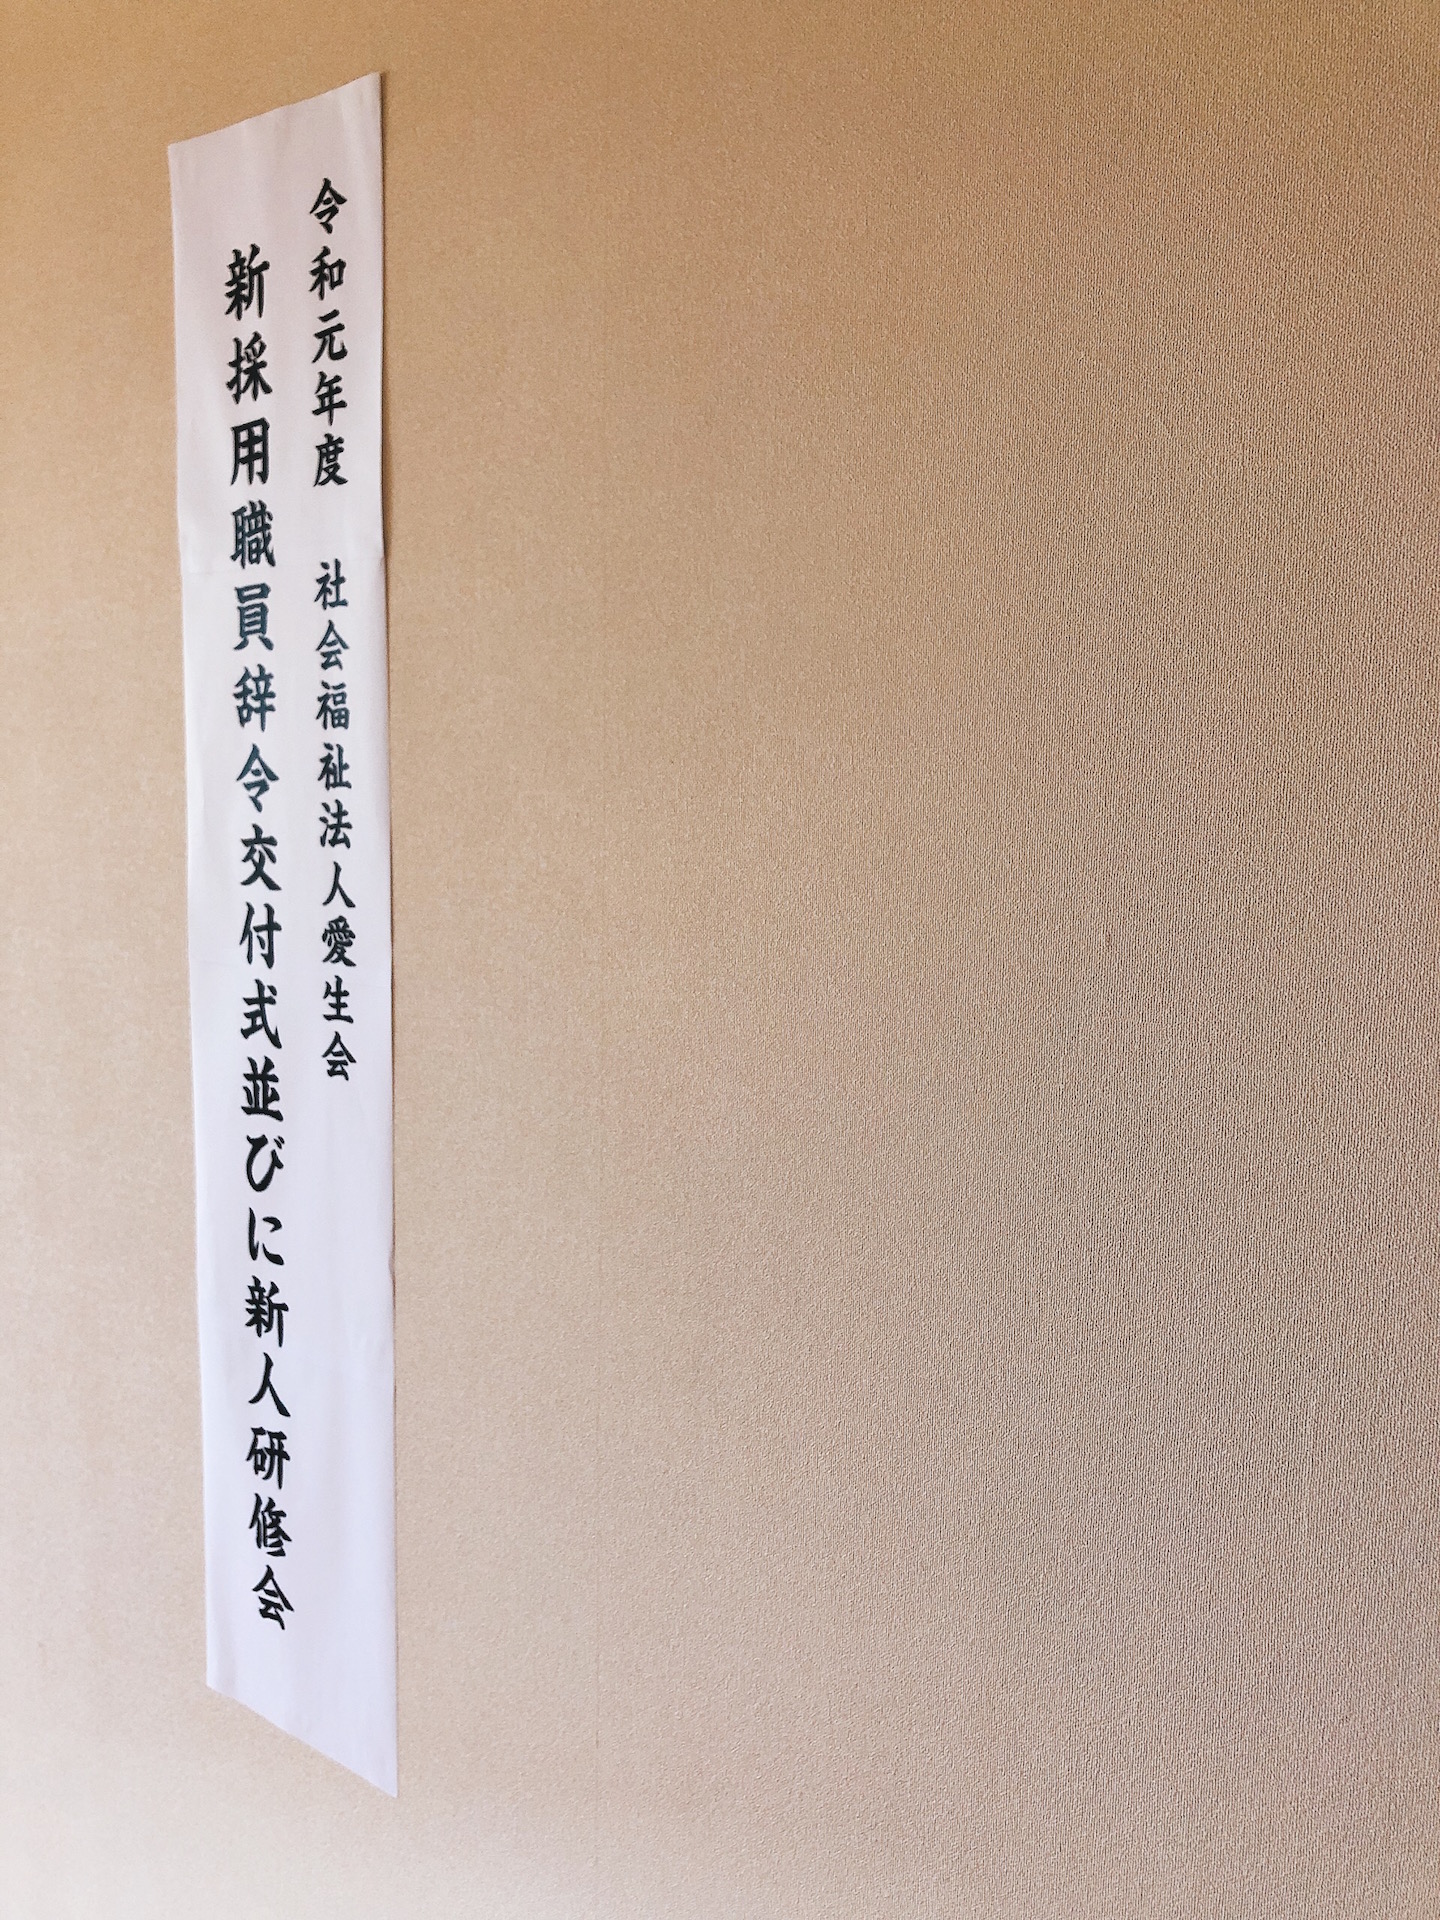 令和元年度　社会福祉法人愛生会
新採用職員辞令交付式並びに新人研修会